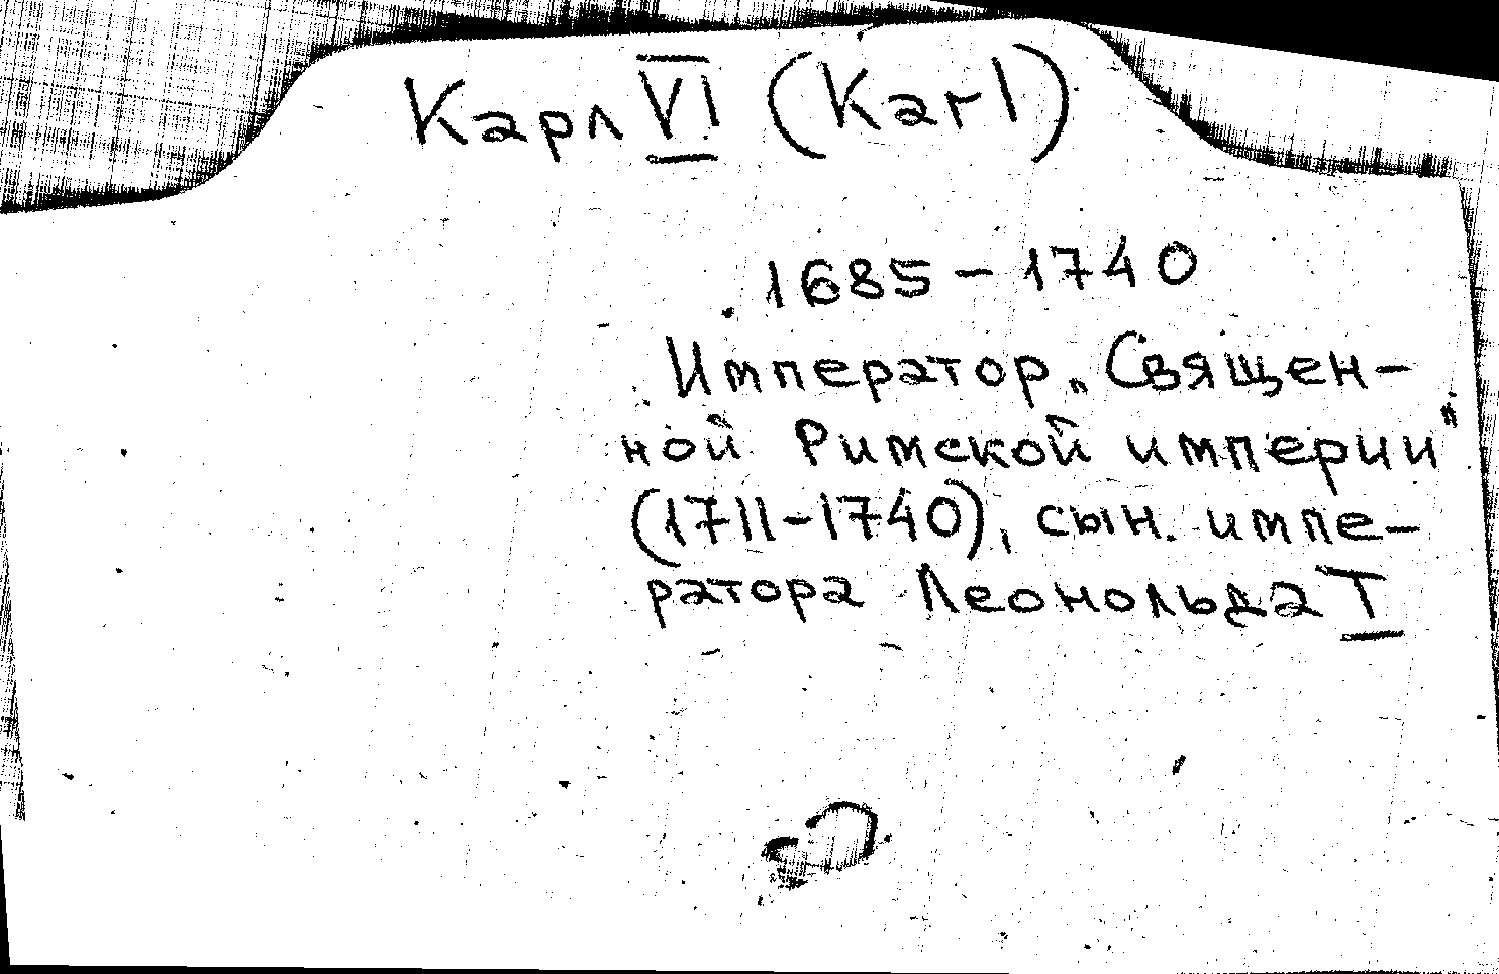 Карл VI (Karl)
1685 - 1740
Император „Священ-
ной Римской империи"
(1711-1740), сын импе-
ратора Леонольда I